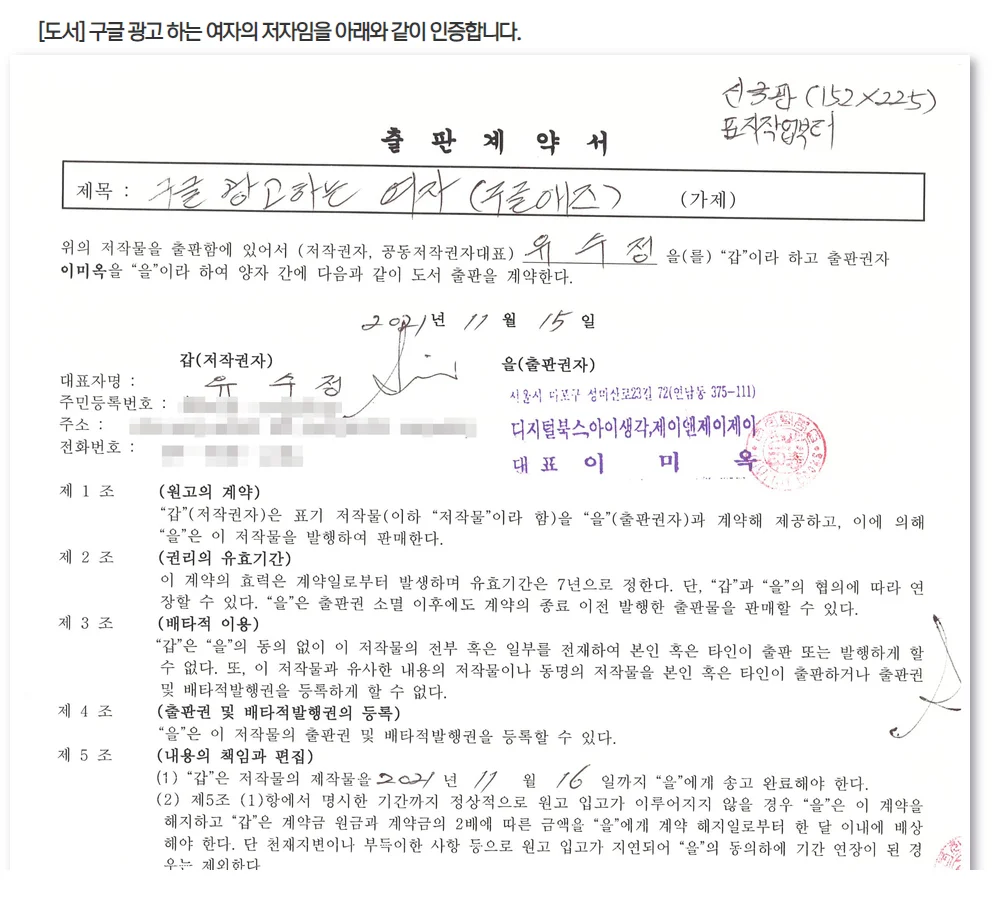 [도서] 구글 광고 하는 여자의 저자임을 아래와 같이 인증합니다.
신국판 (152×225)
표지작업부터
출 판 계 약 서
제목 : 구글 광고하는 여자 (구글애즈) (가제)
위의 저작물을 출판함에 있어서 (저작권자, 공동저작권자대표) 유 수 정 을(를) “갑”이라 하고 출판권자
이미옥을 “을”이라 하여 양자 간에 다음과 같이 도서 출판을 계약한다.
2021년 11 월 15 일
갑(저작권자)
대표자명 : 유 수 정
주민등록번호 :
주소 :
전화번호 :
을(출판권자)
서울시 마포구 성미산로23길 72(연남동 375-111)
디지털북스,아이생각,제이앤제이제이
대 표 이 미 옥
제 1 조 (원고의 계약)
“갑”(저작권자)은 표기 저작물(이하 “저작물”이라 함)을 “을”(출판권자)과 계약해 제공하고, 이에 의해
“을”은 이 저작물을 발행하여 판매한다.
제 2 조 (권리의 유효기간)
이 계약의 효력은 계약일로부터 발생하며 유효기간은 7년으로 정한다. 단, “갑”과 “을”의 협의에 따라 연
장할 수 있다. “을”은 출판권 소멸 이후에도 계약의 종료 이전 발행한 출판물을 판매할 수 있다.
제 3 조 (배타적 이용)
“갑”은 “을”의 동의 없이 이 저작물의 전부 혹은 일부를 전재하여 본인 혹은 타인이 출판 또는 발행하게 할
수 없다. 또, 이 저작물과 유사한 내용의 저작물이나 동명의 저작물을 본인 혹은 타인이 출판하거나 출판권
및 배타적발행권을 등록하게 할 수 없다.
제 4 조 (출판권 및 배타적발행권의 등록)
“을”은 이 저작물의 출판권 및 배타적발행권을 등록할 수 있다.
제 5 조 (내용의 책임과 편집)
(1) “갑”은 저작물의 제작물을 2021 년 11 월 16 일까지 “을”에게 송고 완료해야 한다.
(2) 제5조 (1)항에서 명시한 기간까지 정상적으로 원고 입고가 이루어지지 않을 경우 “을”은 이 계약을
해지하고 “갑”은 계약금 원금과 계약금의 2배에 따른 금액을 “을”에게 계약 해지일로부터 한 달 이내에 배상
해야 한다. 단 천재지변이나 부득이한 사항 등으로 원고 입고가 지연되어 “을”의 동의하에 기간 연장이 된 경
우는 제외한다